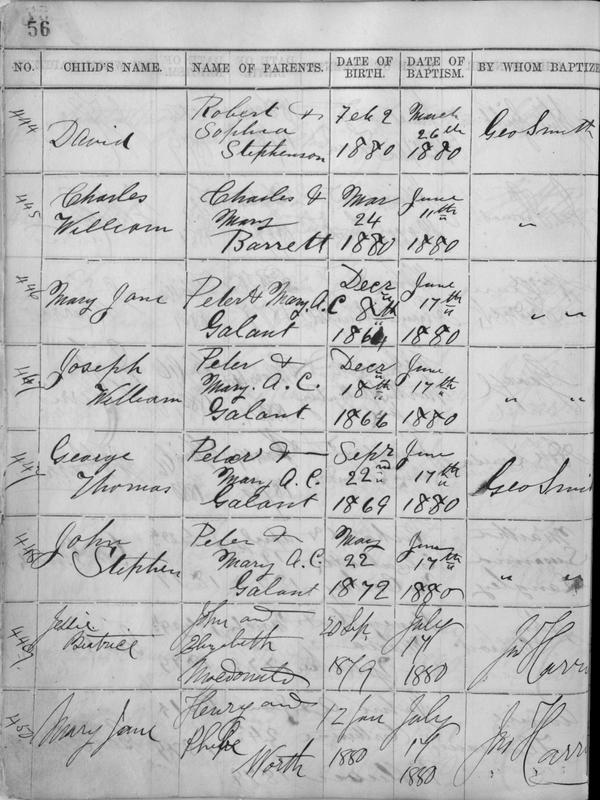 56
NO. CHILD'S NAME. NAME OF PARENTS. DATE OF BIRTH. DATE OF BAPTISM. BY WHOM BAPTIZE
444 David Robert & Sophia Stephenson Feb 2 1880 March 26th 1880 Geo Smith
445 Charles William Charles & Mary Barrett Mar 24 1880 June 11th 1880 "
446 Mary Jane Peter & Mary A. C Galant Decr 8th 1864 June 17th 1880 " "
Joseph William Peter & Mary. A. C. Galant Decr 18th 1866 June 17th 1880 " "
George Thomas Peter & Mary A. C. Galant Sepr 22nd 1869 June 17th 1880 Geo Smi
John Stephen Peter & Mary A. C. Galant May 22 1872 June 17th 1880 " "
Beatrice John and Elizabeth Macdonald 20 Sep 1879 July 1880 Harri
450 Mary Jane Henry and Worth 12 Jan 1880 July 1880 Jas Harri